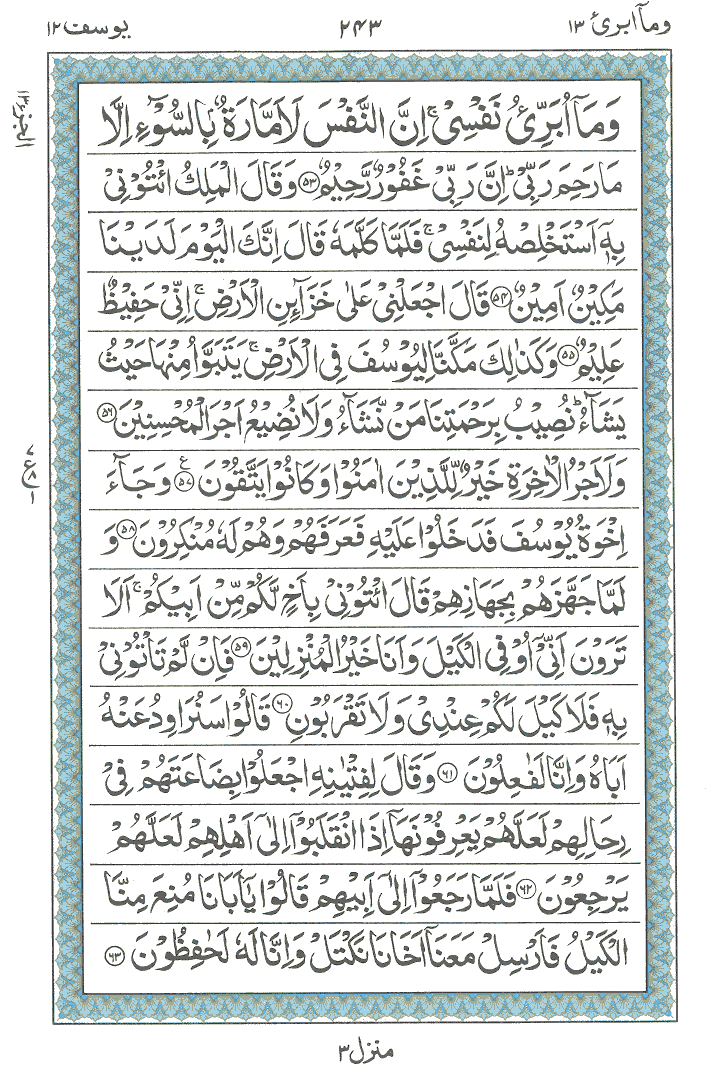 وما ابرئ ١٣
٢٤٣
يوسف ١٢
الجزء ١٣
وَمَاۤ اُبَرِّئُ نَفْسِیْ ۚ اِنَّ النَّفْسَ لَاَمَّارَةٌۢ بِالسُّوْٓءِ اِلَّا
مَا رَحِمَ رَبِّیْ ؕ اِنَّ رَبِّیْ غَفُوْرٌ رَّحِیْمٌ ﴿۵۳﴾ وَقَالَ الْمَلِكُ ائْتُوْنِیْ
بِهٖۤ اَسْتَخْلِصْهُ لِنَفْسِیْ ۚ فَلَمَّا كَلَّمَهٗ قَالَ اِنَّكَ الْیَوْمَ لَدَیْنَا
مَكِیْنٌ اَمِیْنٌ ﴿۵۴﴾ قَالَ اجْعَلْنِیْ عَلٰی خَزَآئِنِ الْاَرْضِ ۚ اِنِّیْ حَفِیْظٌ
عَلِیْمٌ ﴿۵۵﴾ وَكَذٰلِكَ مَكَّنَّا لِیُوْسُفَ فِی الْاَرْضِ ۚ یَتَبَوَّاُ مِنْهَا حَیْثُ
یَشَآءُ ؕ نُصِیْبُ بِرَحْمَتِنَا مَنْ نَّشَآءُ وَلَا نُضِیْعُ اَجْرَ الْمُحْسِنِیْنَ ﴿۵۶﴾
وَلَاَجْرُ الْاٰخِرَةِ خَیْرٌ لِّلَّذِیْنَ اٰمَنُوْا وَكَانُوْا یَتَّقُوْنَ ﴿۵۷﴾ ع وَجَآءَ
اِخْوَةُ یُوْسُفَ فَدَخَلُوْا عَلَیْهِ فَعَرَفَهُمْ وَهُمْ لَهٗ مُنْكِرُوْنَ ﴿۵۸﴾ وَ
لَمَّا جَهَّزَهُمْ بِجَهَازِهِمْ قَالَ ائْتُوْنِیْ بِاَخٍ لَّكُمْ مِّنْ اَبِیْكُمْ ۚ اَلَا
تَرَوْنَ اَنِّیْۤ اُوْفِی الْكَیْلَ وَاَنَا خَیْرُ الْمُنْزِلِیْنَ ﴿۵۹﴾ فَاِنْ لَّمْ تَاْتُوْنِیْ
بِهٖ فَلَا كَیْلَ لَكُمْ عِنْدِیْ وَلَا تَقْرَبُوْنِ ﴿۶۰﴾ قَالُوْا سَنُرَاوِدُ عَنْهُ
اَبَاهُ وَاِنَّا لَفٰعِلُوْنَ ﴿۶۱﴾ وَقَالَ لِفِتْیٰنِهِ اجْعَلُوْا بِضَاعَتَهُمْ فِیْ
رِحَالِهِمْ لَعَلَّهُمْ یَعْرِفُوْنَهَاۤ اِذَا انْقَلَبُوْۤا اِلٰۤی اَهْلِهِمْ لَعَلَّهُمْ
یَرْجِعُوْنَ ﴿۶۲﴾ فَلَمَّا رَجَعُوْۤا اِلٰۤی اَبِیْهِمْ قَالُوْا یٰۤاَبَانَا مُنِعَ مِنَّا
الْكَیْلُ فَاَرْسِلْ مَعَنَاۤ اَخَانَا نَكْتَلْ وَاِنَّا لَهٗ لَحٰفِظُوْنَ ﴿۶۳﴾
منزل ٣